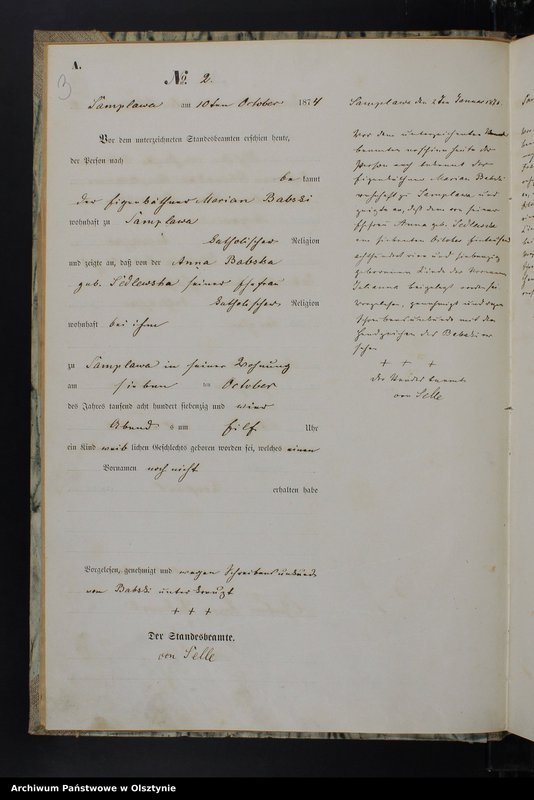 A.
3
No. 2.
Samplawa am 10ten October 1874
Vor dem unterzeichneten Standesbeamten erschien heute,
der Person nach
be kannt
der Eigenkäthner Marian Babski
wohnhaft zu Samplawa
katholischer Religion
und zeigte an, daß von der Anna Babska
geb. Sedlewska seiner Ehefrau
katholischer Religion
wohnhaft bei ihm
zu Samplawa in seiner Wohnung
am sieben ten October
des Jahres tausend acht hundert siebenzig und vier
Abend s um Uhr
ein Kind weib lichen Geschlechts geboren worden sei, welches einen
Vornamen noch nicht
erhalten habe
Vorgelesen, genehmigt und wegen Schreibensunkunde
von Babski unterkreuzt
+ + +
Der Standesbeamte.
von Selle
Samplawa den Januar
Vor dem unterzeichneten Standes
beamten erschien heute der
Person nach bekannt der
Eigenkäthner Marian Babski
wohnhaft zu Samplawa und
zeigte an, daß dem von seiner
Ehefrau Anna geb. Sedlewska
am siebenten October
achthundert vier und siebenzig
geborenen Kinde der Vornamen
Julianna beigelegt worden sei
Vorgelesen, genehmigt und wegen
Schreibensunkunde mit dem
Handzeichen des Babski ver
sehen
+ + +
Der Standesbeamte
von Selle
Archiwum Państwowe w Olsztynie